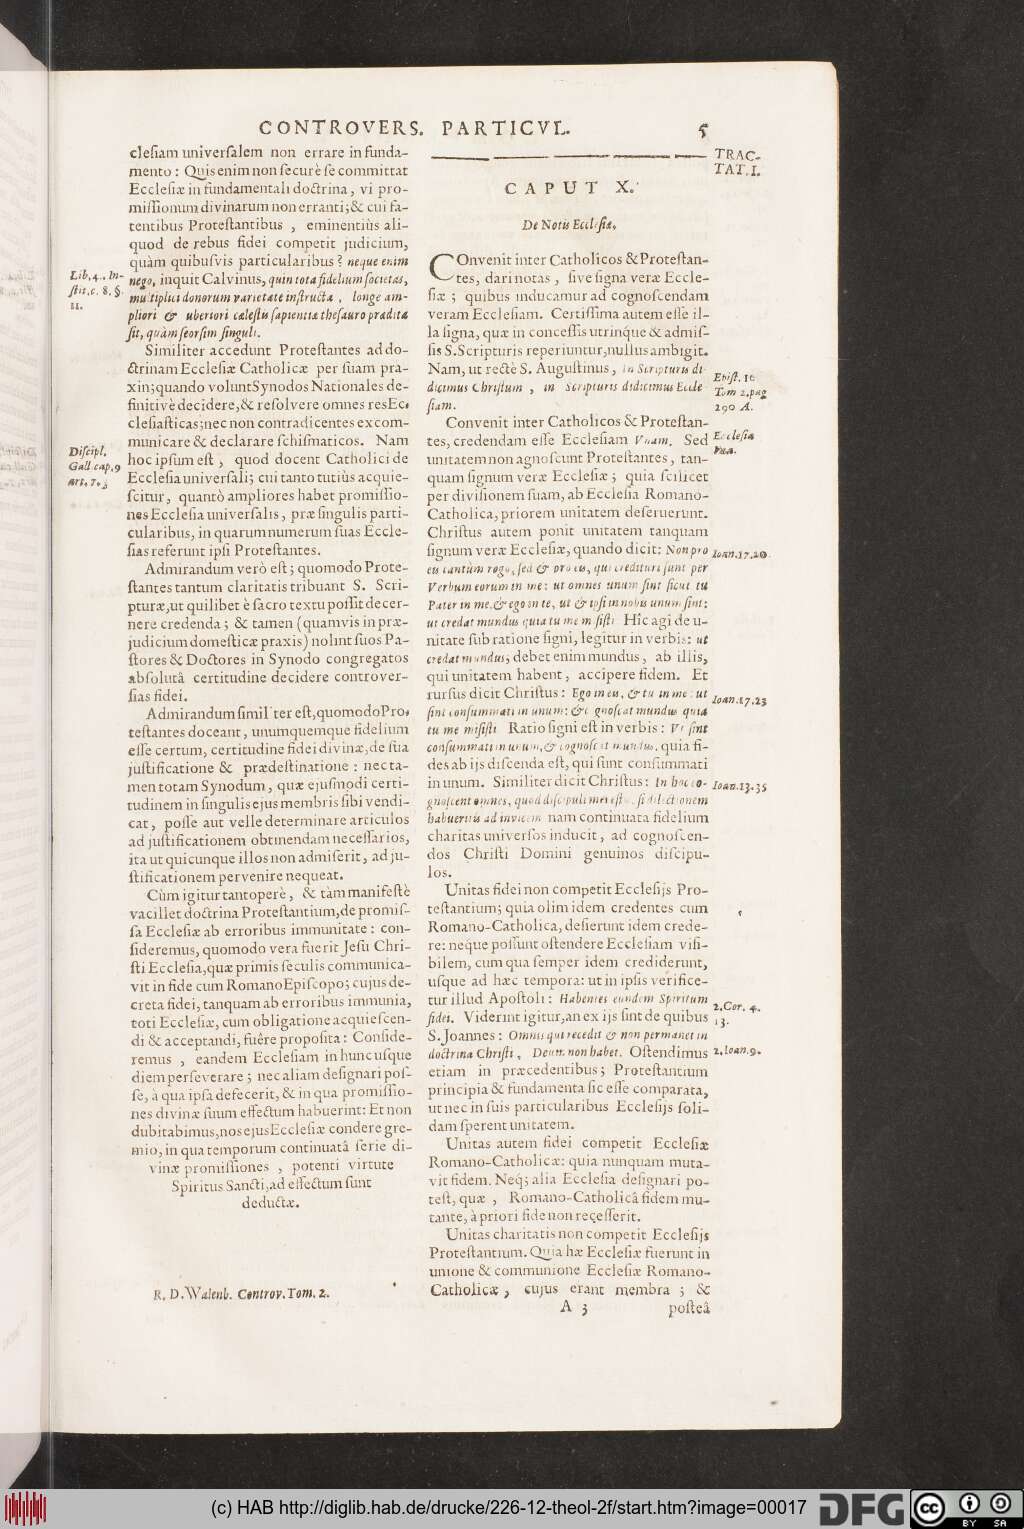 CONTROVERS. PARTICVL. 5
cleſiam univerſalem non errare in funda-
mento: Quis enim non ſecurè ſe committat
Eccleſiæ in fundamentali doctrina, vi pro-
miſſionum divinarum non erranti; & cui fa-
tentibus Proteſtantibus, eminentiùs ali-
quod de rebus fidei competit judicium,
quàm quibuſvis particularibus? neque enim
nego, inquit Calvinus, quin tota fidelium ſocietas,
multiplici donorum varietate inſtructa, longe am-
pliori & uberiori cæleſtis ſapientiæ theſauro prædita
ſit, quàm ſeorſim ſinguli.
Lib. 4. In-
ſtit. c. 8. §.
11.
Similiter accedunt Proteſtantes ad do-
ctrinam Eccleſiæ Catholicæ per ſuam pra-
xin; quando volunt Synodos Nationales de-
finitivè decidere, & reſolvere omnes res Ec-
cleſiaſticas; nec non contradicentes excom-
municare & declarare ſchiſmaticos. Nam
hoc ipſum eſt, quod docent Catholici de
Eccleſia univerſali; cui tanto tutiùs acquie-
ſcitur, quantò ampliores habet promiſſio-
nes Eccleſia univerſalis, præ ſingulis parti-
cularibus, in quarum numerum ſuas Eccle-
ſias referunt ipſi Proteſtantes.
Diſcipl.
Gall. cap. 9
art. 7.
Admirandum verò eſt; quomodo Prote-
ſtantes tantum claritatis tribuant S. Scri-
pturæ, ut quilibet è ſacro textu poſſit decer-
nere credenda; & tamen (quamvis in præ-
judicium domeſticæ praxis) nolint ſuos Pa-
ſtores & Doctores in Synodo congregatos
abſolutâ certitudine decidere controver-
ſias fidei.
Admirandum ſimiliter eſt, quomodo Pro-
teſtantes doceant, unumquemque fidelium
eſſe certum, certitudine fidei divinæ, de ſua
juſtificatione & prædeſtinatione: nec ta-
men totam Synodum, quæ ejuſmodi certi-
tudinem in ſingulis ejus membris ſibi vendi-
cat, poſſe aut velle determinare articulos
ad juſtificationem obtinendam neceſſarios,
ita ut quicunque illos non admiſerit, ad ju-
ſtificationem pervenire nequeat.
Cùm igitur tantoperè, & tàm manifeſtè
vacillet doctrina Proteſtantium, de promiſ-
ſa Eccleſiæ ab erroribus immunitate: con-
ſideremus, quomodo vera fuerit Jeſu Chri-
ſti Eccleſia, quæ primis ſeculis communica-
vit in fide cum Romano Epiſcopo; cujus de-
creta fidei, tanquam ab erroribus immunia,
toti Eccleſiæ, cum obligatione acquieſcen-
di & acceptandi, fuêre propoſita: Conſide-
remus, eandem Eccleſiam in hunc uſque
diem perſeverare; nec aliam deſignari poſ-
ſe, à qua ipſa defecerit, & in qua promiſſio-
nes divinæ ſuum effectum habuerint: Et non
dubitabimus, nos ejus Eccleſiæ condere gre-
mio, in qua temporum continuatâ ſerie di-
vinæ promiſſiones, potenti virtute
Spiritus Sancti, ad effectum ſunt
deductæ.
R. D. Walenb. Controv. Tom. 2.
TRAC-
TAT. I.
CAPUT X.
De Notis Eccleſiæ.
COnvenit inter Catholicos & Proteſtan-
tes, dari notas, ſive ſigna veræ Eccle-
ſiæ; quibus inducamur ad cognoſcendam
veram Eccleſiam. Certiſſima autem eſſe il-
la ſigna, quæ in conceſſis utrinque & admiſ-
ſis S. Scripturis reperiuntur, nullus ambigit.
Nam, ut rectè S. Auguſtinus, in Scripturis di-
dicimus Chriſtum, in Scripturis didicimus Eccle-
ſiam.
Epiſt. 16
Tom 2. pag
290 A.
Convenit inter Catholicos & Proteſtan-
tes, credendam eſſe Eccleſiam Vnam. Sed
unitatem non agnoſcunt Proteſtantes, tan-
quam ſignum veræ Eccleſiæ; quia ſcilicet
per diviſionem ſuam, ab Eccleſia Romano-
Catholica, priorem unitatem deſeruerunt.
Chriſtus autem ponit unitatem tanquam
ſignum veræ Eccleſiæ, quando dicit: Non pro
eis tantùm rogo, ſed & pro eis, qui credituri ſunt per
Verbum eorum in me: ut omnes unum ſint ſicut tu
Pater in me, & ego in te, ut & ipſi in nobis unum ſint:
ut credat mundus quia tu me miſiſti. Hîc agi de u-
nitate ſub ratione ſigni, legitur in verbis: ut
credat mundus; debet enim mundus, ab illis,
qui unitatem habent, accipere fidem. Et
rurſus dicit Chriſtus: Ego in eis, & tu in me: ut
ſint conſummati in unum: & cognoſcat mundus quia
tu me miſiſti. Ratio ſigni eſt in verbis: Vt ſint
conſummati in unum, & cognoſcat mundus. quia fi-
des ab ijs diſcenda eſt, qui ſunt conſummati
in unum. Similiter dicit Chriſtus: In hoc co-
gnoſcent omnes, quod diſcipuli mei eſtis, ſi dilectionem
habueritis ad invicem. nam continuata fidelium
charitas univerſos inducit, ad cognoſcen-
dos Chriſti Domini genuinos diſcipu-
los.
Eccleſia
Vna.
Ioan. 17. 20.
Ioan. 17. 23
Ioan. 13. 35
Unitas fidei non competit Eccleſijs Pro-
teſtantium; quia olim idem credentes cum
Romano-Catholica, deſierunt idem crede-
re: neque poſſunt oſtendere Eccleſiam viſi-
bilem, cum qua ſemper idem crediderunt,
uſque ad hæc tempora: ut in ipſis verifice-
tur illud Apoſtoli: Habentes eundem Spiritum
fidei. Viderint igitur, an ex ijs ſint de quibus
S. Joannes: Omnis qui recedit & non permanet in
doctrina Chriſti, Deum non habet. Oſtendimus
etiam in præcedentibus; Proteſtantium
principia & fundamenta ſic eſſe comparata,
ut nec in ſuis particularibus Eccleſijs ſoli-
dam ſperent unitatem.
2. Cor. 4.
13.
2. Ioan. 9.
Unitas autem fidei competit Eccleſiæ
Romano-Catholicæ: quia nunquam muta-
vit fidem. Neq; alia Eccleſia deſignari po-
teſt, quæ, Romano-Catholicâ fidem mu-
tante, à priori fide non receſſerit.
Unitas charitatis non competit Eccleſijs
Proteſtantium. Quia hæ Eccleſiæ fuerunt in
unione & communione Eccleſiæ Romano-
Catholicæ, cujus erant membra; &
A 3 poſteâ
(c) HAB http://diglib.hab.de/drucke/226-12-theol-2f/start.htm?image=00017
DFG
cc BY SA